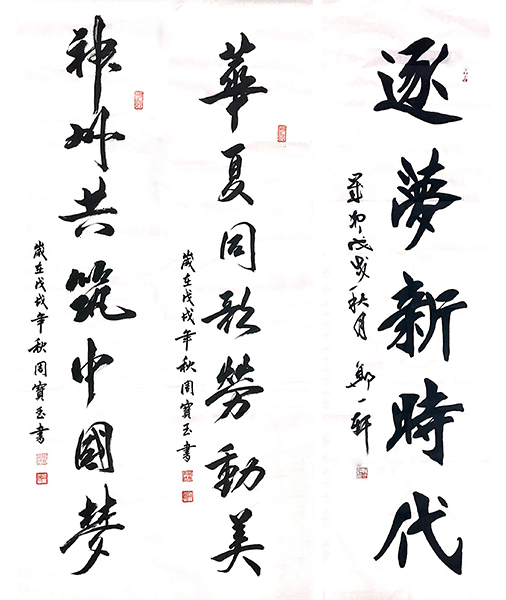 逐夢新時代
秋月 一軒
華夏同歌勞動美
歲在戊戌年秋周寶玉書
神州共筑中國梦
歲在戊戌年秋周寶玉書